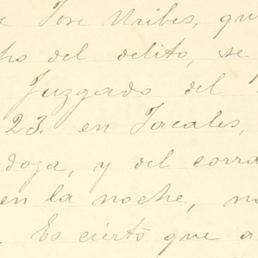 Jose Uribes, qu
ho del delito, se
Juzgado del
23. en Tacales,
doza, y del corra
en la noche, no
. Es cierto que a